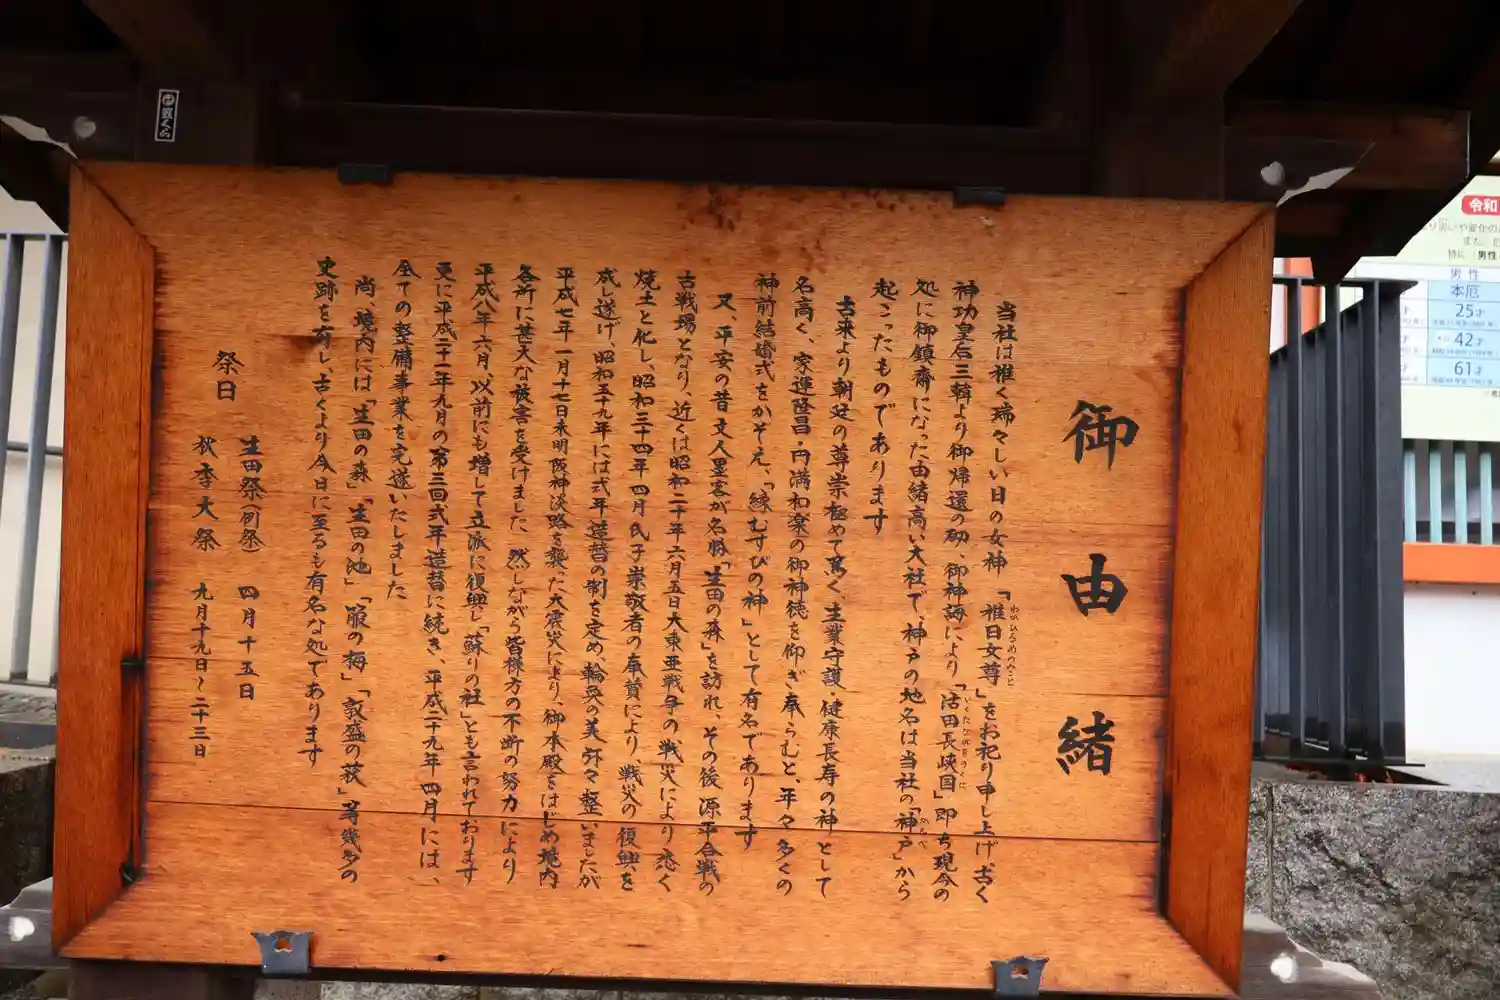 御由緒
当社は稚く瑞々しい日の女神「稚日女尊」をお祀り申し上げ、古く
わかひるめのみこと
神功皇后三韓より御帰還の砌、御神誨により「活田長峡国」即ち現今の
いくたながをのくに
処に御鎮斎になった由緒高い大社で、神戸の地名は当社の「神戸」から
かんべ
起こったものであります
古来より朝廷の尊崇極めて篤く、生業守護・健康長寿の神として
名高く、家運隆昌・円満和楽の御神徳を仰ぎ奉らむと、年々多くの
神前結婚式をかぞえ、「縁むすびの神」として有名であります
又、平安の昔文人墨客が名勝「生田の森」を訪れ、その後源平合戦の
古戦場となり、近くは昭和二十年六月五日大東亜戦争の戦災により悉く
焼土と化し、昭和三十四年四月氏子崇敬者の奉賛により、戦災の復興を
成し遂げ、昭和五十九年には式年造替の制を定め、輪奐の美弥々整いましたが
平成七年一月十七日未明阪神淡路を襲った大震災により、御本殿をはじめ境内
各所に甚大な被害を受けました 然しながら皆様方の不断の努力により
平成八年六月、以前にも増して立派に復興し「蘇りの社」とも言われております
更に平成二十一年九月の第三回式年造替に続き、平成二十九年四月には、
全ての整備事業を完遂いたしました
尚、境内には「生田の森」「生田の池」「箙の梅」「敦盛の萩」等幾多の
史跡を有し、古くより今日に至るも有名な処であります
祭日 生田祭(例祭) 四月十五日
秋季大祭 九月十九日～二十三日
令和
男性
本厄
25才
42才
61才